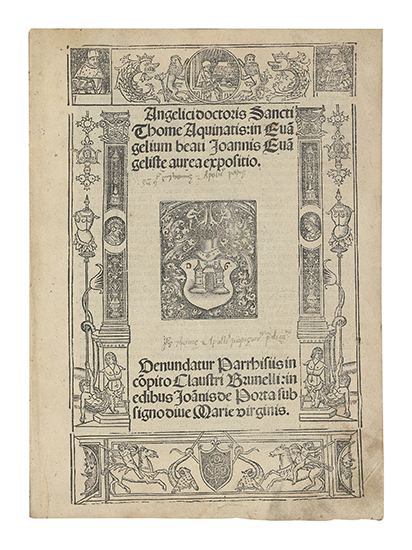 Angelici doctoris Sancti
Thome Aquinatis: in Euã
gelium beati Joannis Euã
geliste aurea expositio.
Venundatur Parrhisiis in
cõpito Claustri Brunelli: in
edibus Joãnis de Porta sub
signo diue Marie virginis.